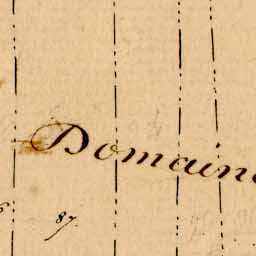 Domaine
87.